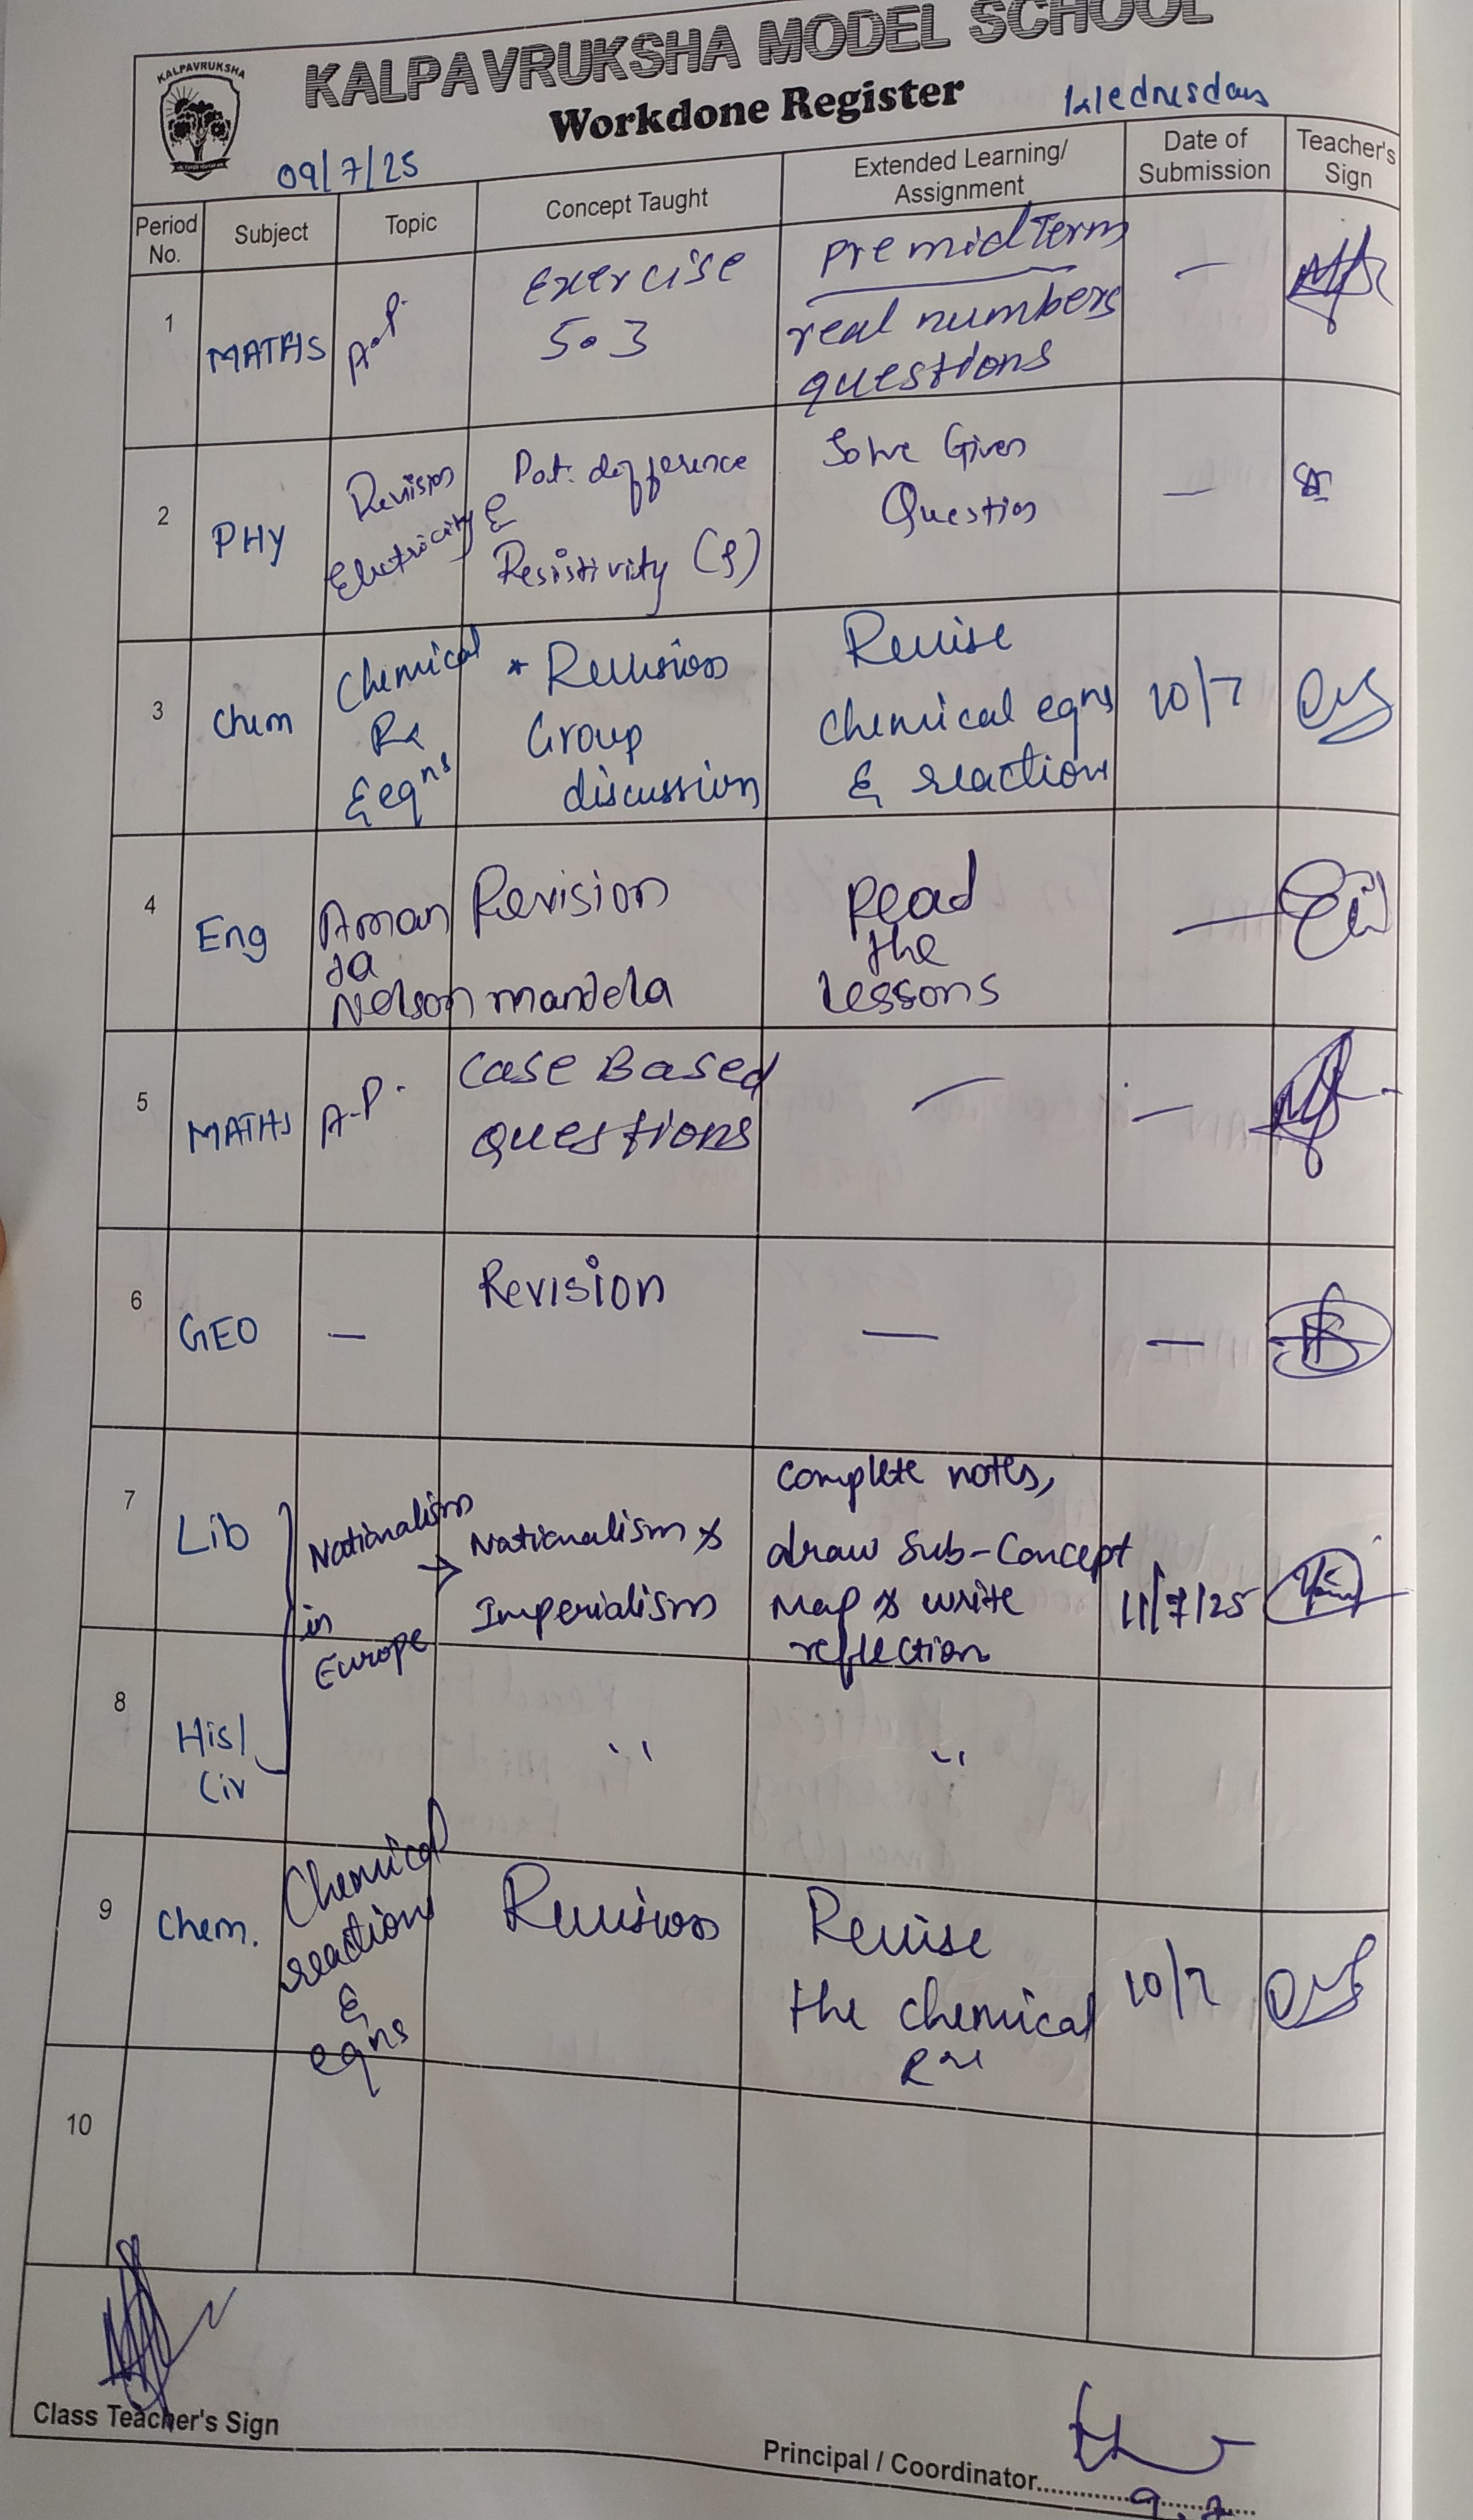 KALPAVRUKSHA
KALPAVRUKSHA MODEL SCHOOL
Workdone Register
Wednesday
09/7/25
Period No.
Subject
Topic
Concept Taught
Extended Learning/ Assignment
Date of Submission
Teacher's Sign
1
MATHS
A.P.
Exercise
5.3
pre midTerm
real numbers
questions
—
2
PHY
Revision
Electricity
Pot. difference
&
Resistivity (ρ)
Solve Given
Question
—
3
Chem
Chemical
Rx
& eqns
* Revision
Group
discussion
Revise
chemical eqns
& reaction
10/7
4
Eng
Aman
da
Nelson mandela
Revision
Read
the
lessons
—
5
MATHS
A.P.
Case Based
questions
—
—
6
GEO
—
Revision
—
—
7
Lib
Nationalism
in
Europe
→ Nationalism &
Imperialism
Complete notes,
draw Sub-Concept
Map & write
reflection
11/7/25
8
His/
Civ
"
"
9
Chem.
Chemical
reaction
&
eqns
Revision
Revise
the chemical
10/7
10
Class Teacher's Sign
Principal / Coordinator
9.7